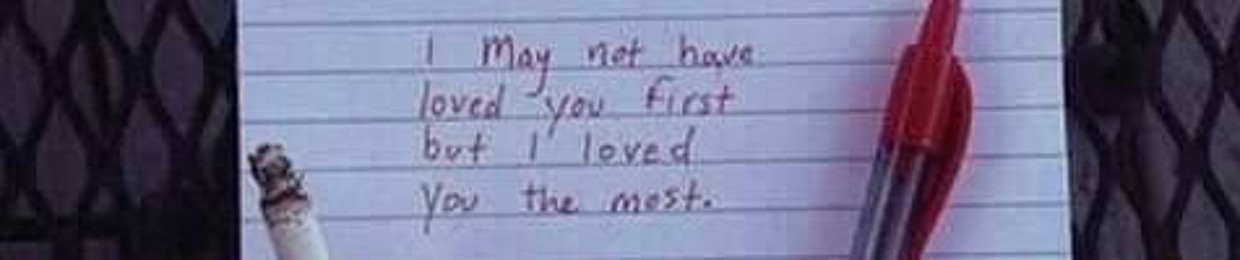 I May not have
loved you first
but I loved
you the most.